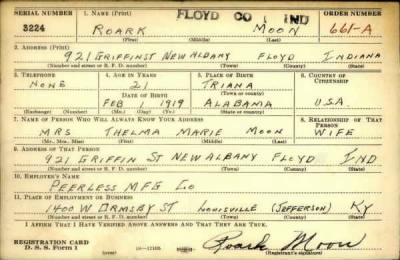 SERIAL NUMBER 1. NAME (Print) FLOYD CO. IND ORDER NUMBER
3224 ROARK MOON 661-A
(First) (Middle) (Last)
2. ADDRESS (Print)
921 GRIFFIN ST NEW ALBANY FLOYD INDIANA
(Number and street or R. F. D. number) (Town) (County) (State)
3. TELEPHONE 4. AGE IN YEARS 5. PLACE OF BIRTH 6. COUNTRY OF CITIZENSHIP
NONE 21 TRIANA
DATE OF BIRTH (Town or county)
FEB 1 1919 ALABAMA U.S.A.
(Exchange) (Number) (Mo.) (Day) (Yr.) (State or country)
7. NAME OF PERSON WHO WILL ALWAYS KNOW YOUR ADDRESS 8. RELATIONSHIP OF THAT PERSON
MRS THELMA MARIE MOON WIFE
(Mr., Mrs., Miss) (First) (Middle) (Last)
9. ADDRESS OF THAT PERSON
921 GRIFFIN ST NEW ALBANY FLOYD IND
(Number and street or R. F. D. number) (Town) (County) (State)
10. EMPLOYER'S NAME
PEERLESS MFG CO
11. PLACE OF EMPLOYMENT OR BUSINESS
1400 W ORMSBY ST LOUISVILLE (JEFFERSON) KY
(Number and street or R. F. D. number) (Town) (County) (State)
I AFFIRM THAT I HAVE VERIFIED ABOVE ANSWERS AND THAT THEY ARE TRUE.
REGISTRATION CARD
D. S. S. Form 1 (over) Roark Moon
(Registrant's signature)